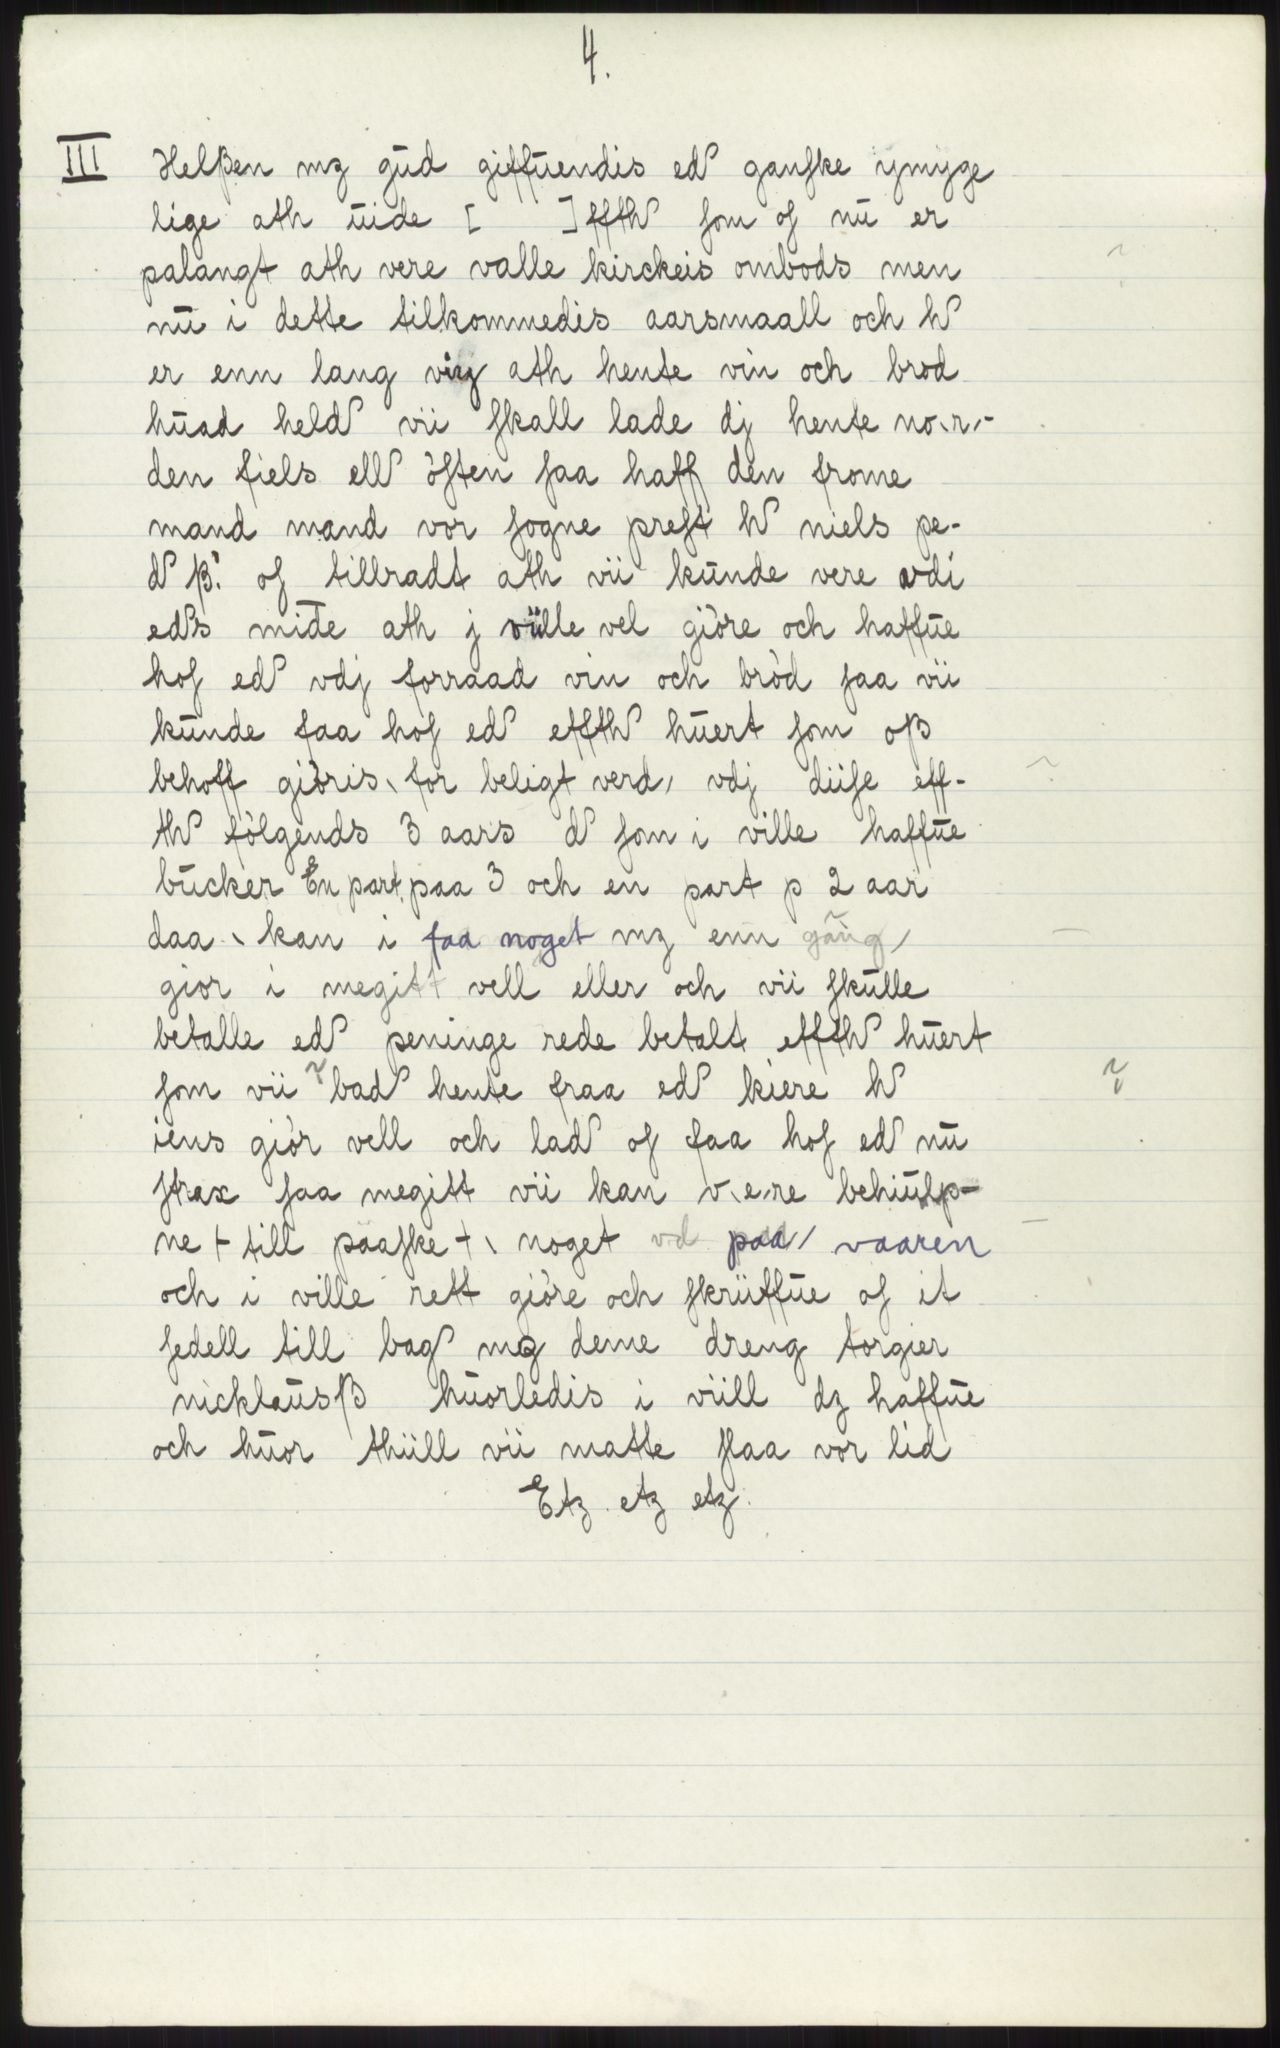 4.
III Helßen mz gud giffuendis ed ganske ymyge
lige ath uide [ ] ffth som os nu er
palangt ath vere valle kirckeis ombods men
nu i dette tilkommedis aarsmaall och h
er enn lang viig ath hente vin och brod
huad held vii skall lade dj hente no.r.-
den fiels ell östen saa haff den frome
mand mand vor sogne prest h niels pe-
d ß: os tillradt ath vii kunde vere vdi
eds mide ath j viille vel giöre och haffue
hos ed vdj forraad vin och bröd saa vii
kunde faa hos ed effth huert som oß
behoff giöris, for beligt verd, vdj diise eff-
th fölgends 3 aars d som i ville haffue
bucker En part paa 3 och en part p 2 aar
daa, kan i faa noget mz enn gang,
gior i megitt vell eller och vii skulle
betalle ed peninge rede betalt effth huert
som vii bad hente fraa ed kiere h
iens giör vell och lad os faa hos ed nu
strax saa megitt vii kan v.e.re behiulp-
ne + till paaske +, noget vd paa, vaaren
och i ville rett giöre och skriiffue os it
sedell till bag mz denne dreng torgier
nicklausß huorledis i viill dz haffue
och huor thiill vii matte slaa vor lid
Etz etz etz.